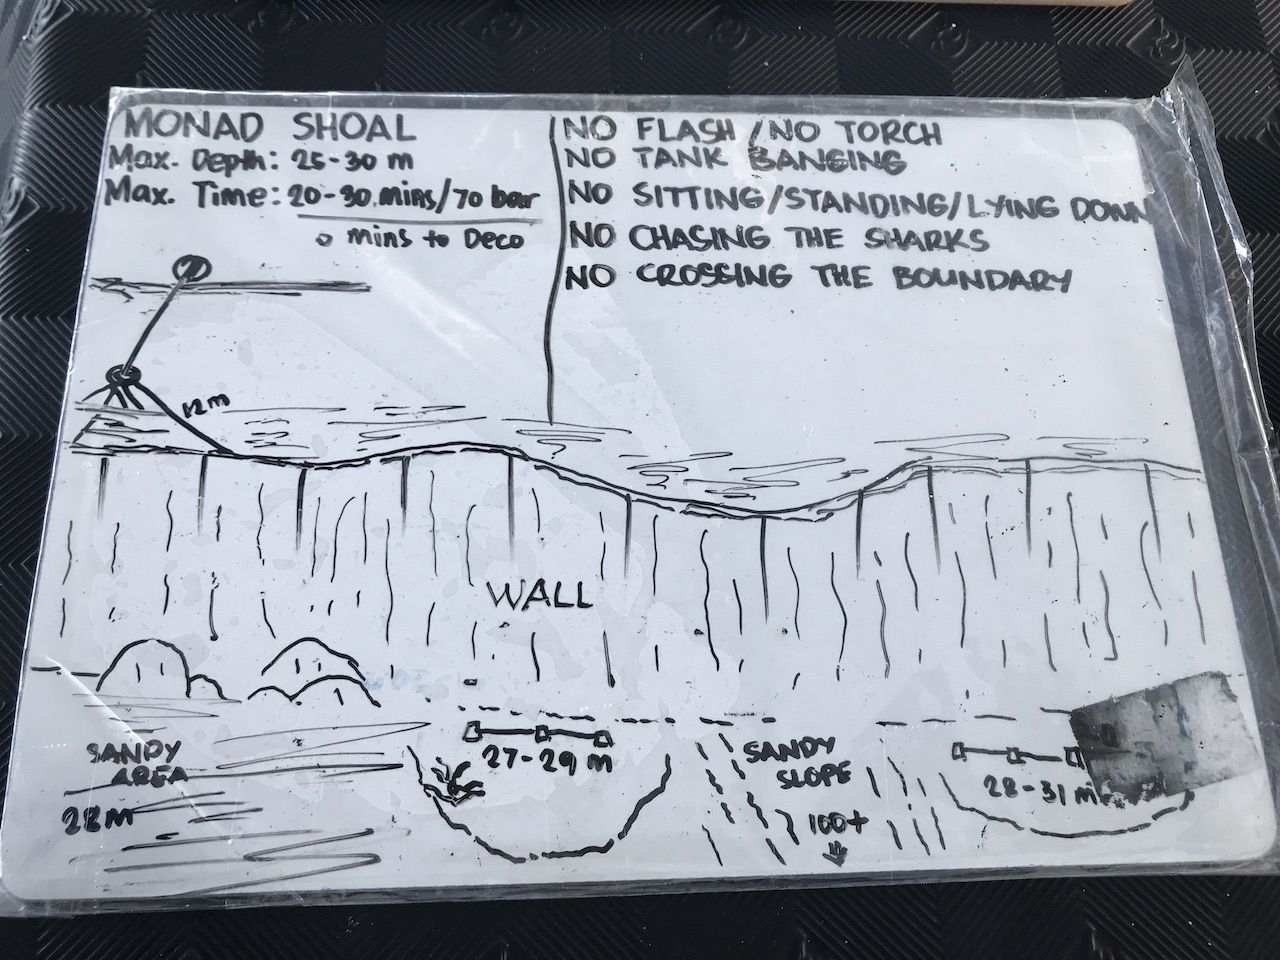 MONAD SHOAL
Max. Depth: 25-30 m
Max. Time: 20-30 mins/70 bar
0 mins to Deco
NO FLASH / NO TORCH
NO TANK BANGING
NO SITTING/STANDING/LYING DOWN
NO CHASING THE SHARKS
NO CROSSING THE BOUNDARY
12m
WALL
SANDY
AREA
22M
27-29 m
SANDY
SLOPE
100+
28-31 m